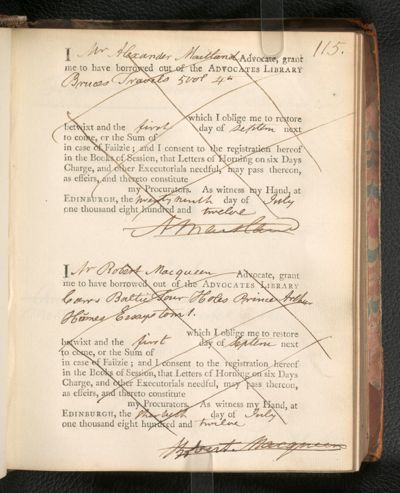 115.
I Mr Alexander Maitland Advocate, grant
me to have borrowed out of the ADVOCATES LIBRARY
Bruces Travels 5 vol 4to
which I oblige me to restore
betwixt and the first day of Septem next
to come, or the Sum of
in case of Failzie; and I consent to the registration hereof
in the Books of Session, that Letters of Horning on six Days
Charge, and other Executorials needful, may pass thereon,
as effeirs, and thereto constitute
my Procurators. As witness my Hand, at
EDINBURGH, the twenty ninth day of July
one thousand eight hundred and twelve
A Maitland
I Mr Robert Macqueen Advocate, grant
me to have borrowed out of the ADVOCATES LIBRARY
Carrs Baltic Tour Prince Arthur
Essays tom 1.
which I oblige me to restore
betwixt and the first day of Septem next
to come, or the Sum of
in case of Failzie; and I consent to the registration hereof
in the Books of Session, that Letters of Horning on six Days
Charge, and other Executorials needful, may pass thereon,
as effeirs, and thereto constitute
my Procurators. As witness my Hand, at
EDINBURGH, the day of July
one thousand eight hundred and twelve
Robert Macqueen